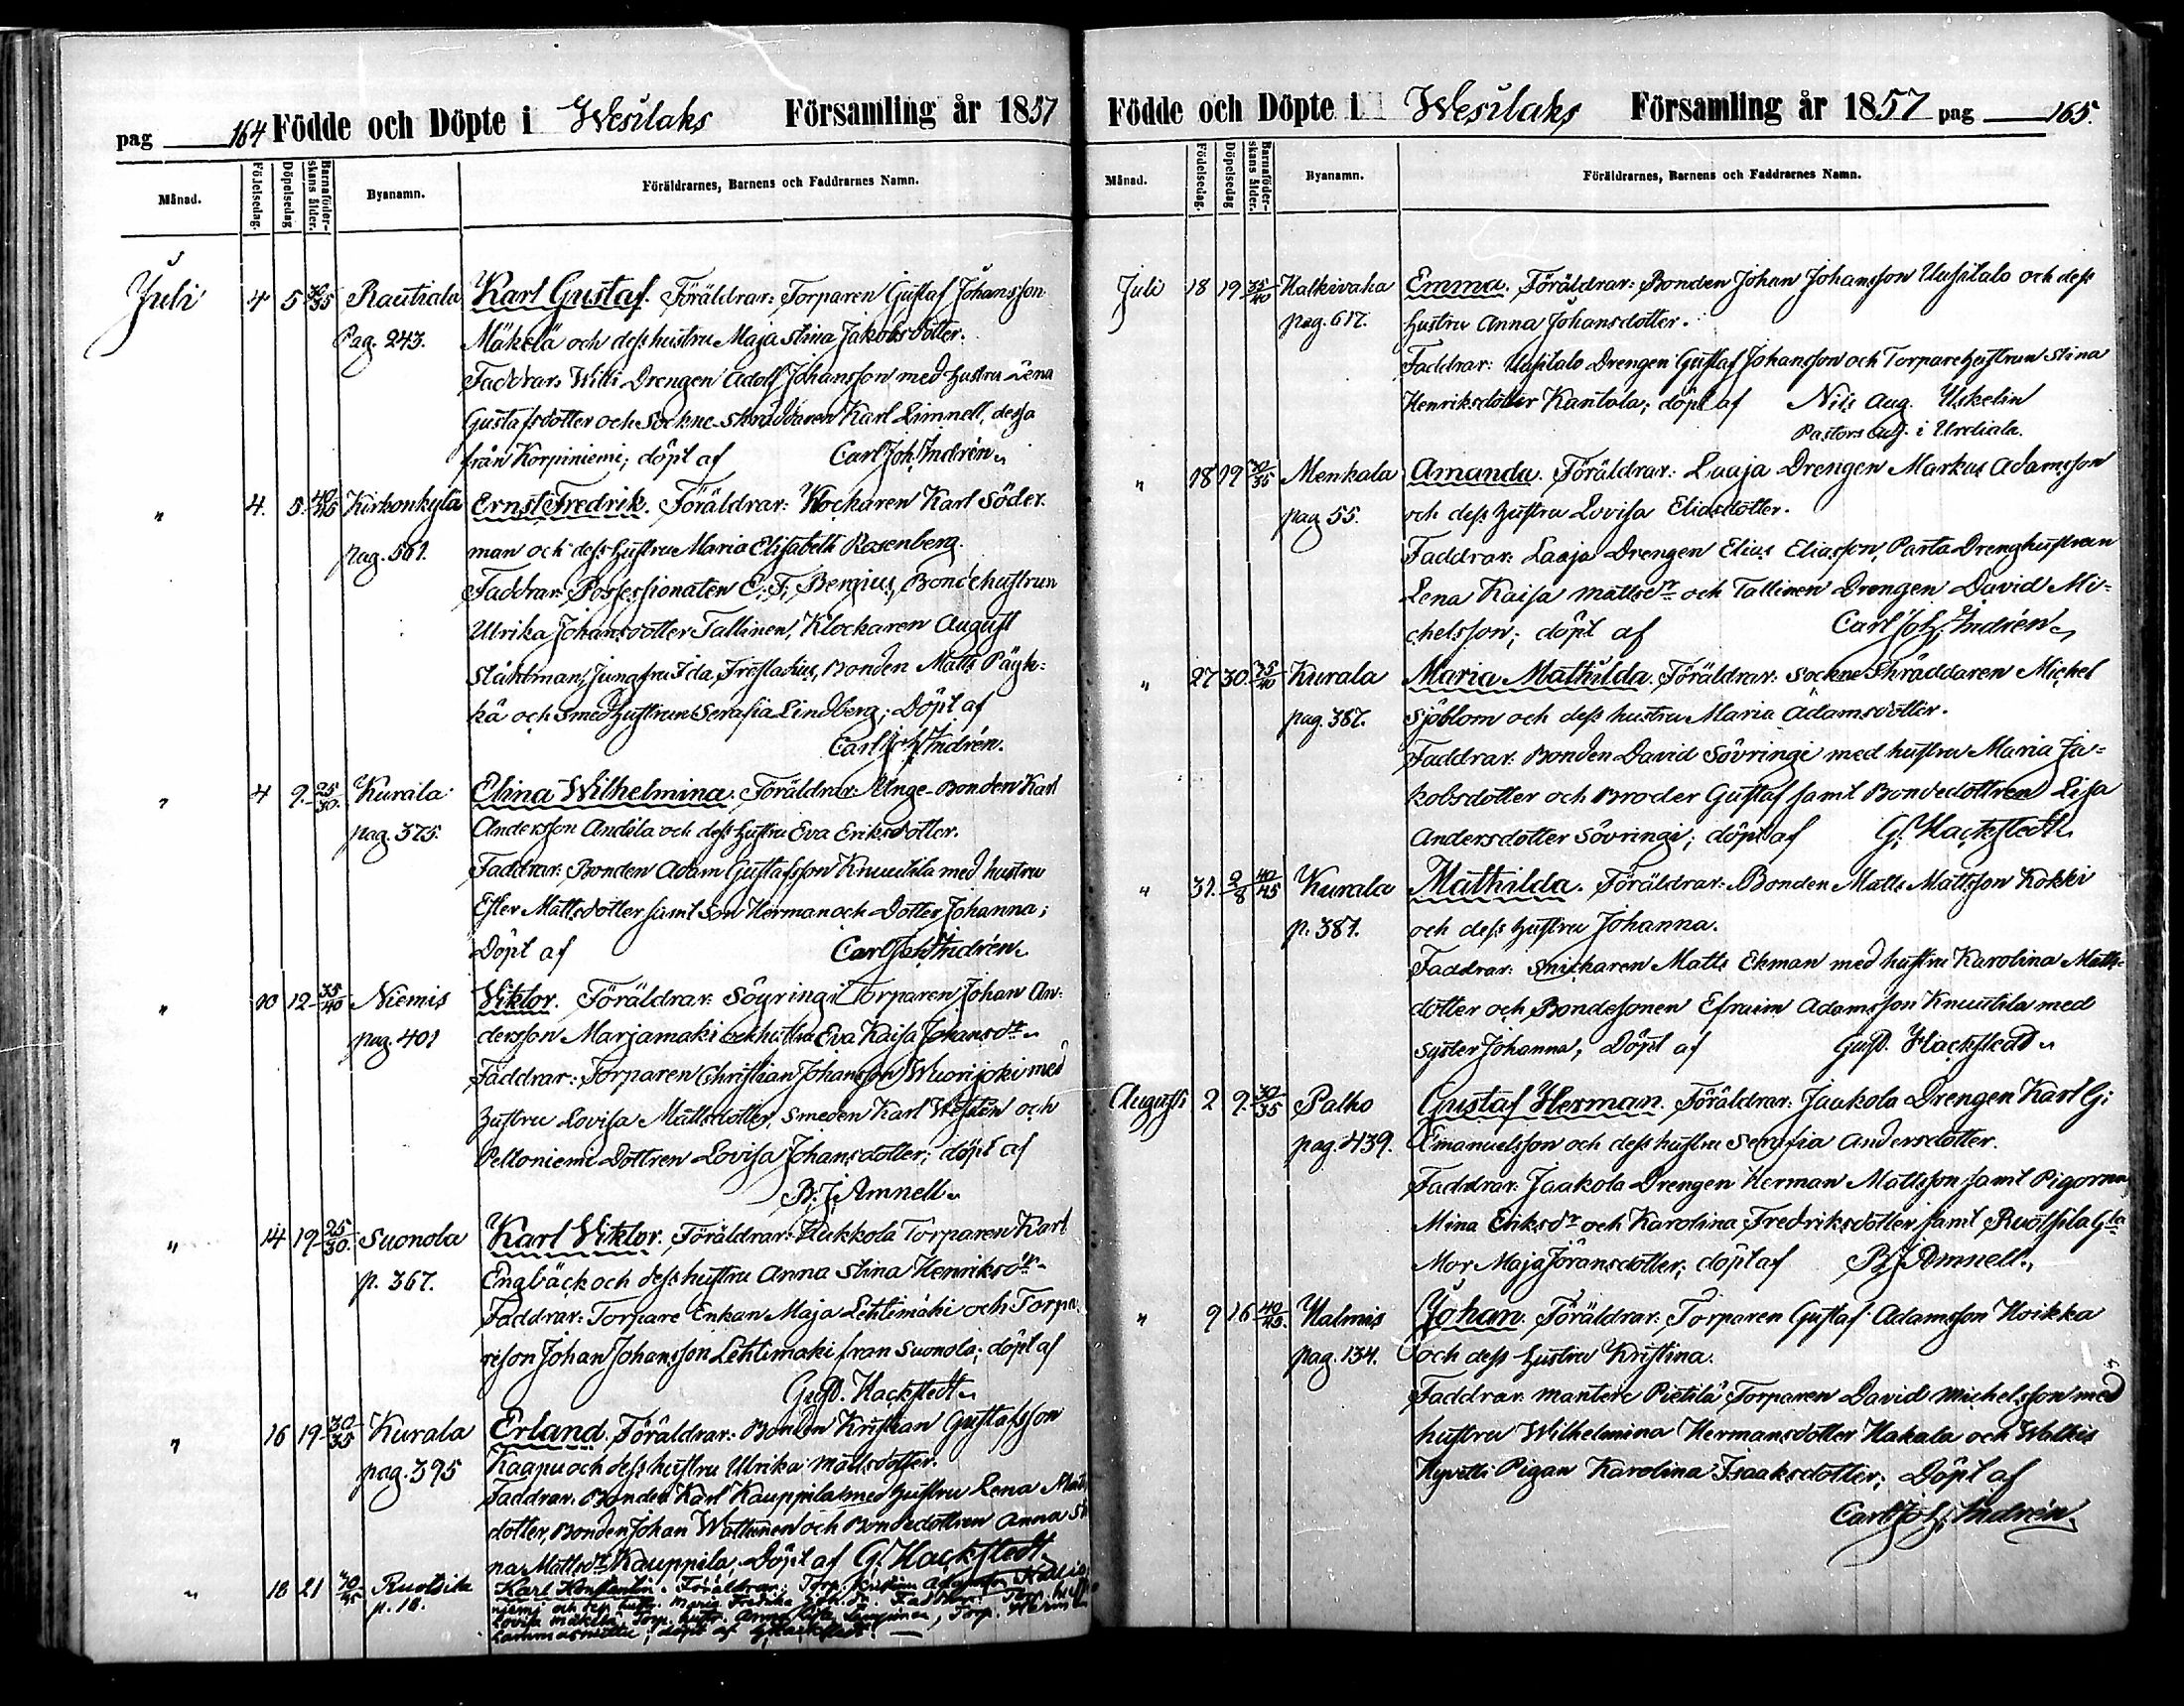 pag 164 Födde och Döpte i Wesilaks Församling år 1857
Månad. Födelsedag. Döpelsedag Barnaföder-skans ålder. Byanamn. Föräldrarnes, Barnens och Faddrarnes Namn.
Juli 4 5 30/35 Rautiala Karl Gustaf. Föräldrar: Torparen Gustaf Johansson
Pag. 243. Mäkelä och dess hustru Maja Stina Jakobsdotter.
Faddrar: Willi Drengen Adolf Johansson med hustru Lena
Gustafsdotter och Sockne-Skräddaren Karl Limnell, dessa
från Korpiniemi; döpt af Carl Joh. Indrén.
" 4. 5. 40/45 Kirkonkylä Ernst Fredrik. Föräldrar: Klockaren Karl Söder-
pag. 561. man och dess hustru Maria Elisabeth Rosenberg.
Faddrar: Possessionaten C. F. Bergius, Bondehustrun
Ulrika Johansdotter Tallinen, Klockaren August
Ståhlman, Jungfru Ida Frestadius, Bonden Matts Päyk-
kä och Smedhustrun Serafia Lindberg; Döpt af
Carl Joh. Indrén.
" 4 9. 25/30. Kurala Elina Wilhelmina. Föräldrar: Unge-Bonden Karl
pag. 375. Andersson Andila och dess hustru Eva Eriksdotter.
Faddrar: Bonden Adam Gustafsson Knuutila med hustru
Ester Mattsdotter samt Son Herman och Dotter Johanna;
Döpt af Carl Joh. Indrén.
" 10 12 35/40 Niemis Viktor. Föräldrar: Söyringi Torparen Johan An-
pag. 401 dersson Marjamäki och hustru Eva Kaisa Johansdr.
Faddrar: Torparen Christian Johansson Wuorijoki med
hustru Lovisa Mattsdotter, Smeden Karl Westén och
Peltoniemi Dottren Lovisa Johansdotter; döpt af
B. J. Amnell.
" 14 19 25/30. Suonola Karl Viktor. Föräldrar: Kukkola Torparen Karl
p. 367. Engbäck och dess hustru Anna Stina Henriksdr.
Faddrar: Torpare Enkan Maja Lehtimäki och Torpa-
reson Johan Johansson Lehtimäki från Suonola; döpt af
Gust. Hackstedt.
" 16 19 30/35 Kurala Erland. Föräldrar: Bonden Kristian Gustafsson
pag. 395 Kaapu och dess hustru Ulrika Mattsdotter.
Faddrar: Bonden Karl Kauppila med hustru Lena Matts
dotter, Bonden Johan Wattunen och Bondedottren Anna Sti
na Mattsdr Kauppila; Döpt af G. Hackstedt.
" 18 21 Ruotsila Karl Konstantin. Föräldrar: Torp. Kristian Adamsson
p. 18. niemi och dess hustr. Maria Fredrika Faddrar: Torp. hust
Lovisa Mäkelä, Torp. hustr. Anna Lisa Torp. Herman
döpt af G. Hackstedt.
Födde och Döpte i Wesilaks Församling år 1857 pag 165.
Månad. Födelsedag. Döpelsedag Barnaföder-skans ålder. Byanamn. Föräldrarnes, Barnens och Faddrarnes Namn.
Juli 18 19 35/40 Halkivaha Emma. Föräldrar: Bonden Johan Johansson Uusitalo och dess
pag. 617. hustru Anna Johansdotter.
Faddrar: Uusitalo Drengen Gustaf Johansson och Torparehustrun Stina
Henriksdotter Kantola; döpt af Nils Aug. Uskelin
Pastors adj. i Urdiala.
" 18 19 30/35 Menkala Amanda. Föräldrar: Laaja Drengen Markus Adamsson
pag 55. och dess hustru Lovisa Eliasdotter.
Faddrar: Laaja Drengen Elias Eliasson, Parta Drenghustrun
Lena Kaisa Mattsdr och Tallinen Drengen David Mi-
chelsson; döpt af Carl Joh. Indrén.
" 27 30. 35/40 Kurala Maria Mathilda. Föräldrar: Sockne Skräddaren Michel
pag. 387. Sjöblom och dess hustru Maria Adamsdotter.
Faddrar: Bonden David Sövringi med hustru Maria Ja-
kobsdotter och Broder Gustaf samt Bondedottren Lisa
Andersdotter Sövringi; döpt af G. Hackstedt.
" 31. 2/8 40/45 Kurala Mathilda. Föräldrar: Bonden Matts Mattsson Kokki
p. 381. och dess hustru Johanna.
Faddrar: Snickaren Matts Ekman med hustru Karolina Matts-
dotter och Bondesonen Efraim Adamsson Knuutila med
Syster Johanna; Döpt af Gust. Hackstedt.
Augusti 2 9. 30/35 Palho Gustaf Herman. Föräldrar: Jaakola Drengen Karl G.
pag. 439. Emanuelsson och dess hustru Serafia Andersdotter.
Faddrar: Jaakola Drengen Herman Mattsson samt Pigorna
Mina Eriksdr och Karolina Fredriksdotter samt Ruotsila Gla
Mor Maja Jöransdotter; döpt af B. J. Amnell.
" 9 16 40/45. Halmis Johan. Föräldrar: Torparen Gustaf Adamsson Hoikka
pag. 134. och dess hustru Kristina.
Faddrar: Mantere Pietilä Torparen David Michelsson med
hustru Wilhelmina Hermansdotter Hakala och Walkis
Hyvetti Pigan Karolina Isaaksdotter; Döpt af
Carl Joh. Indrén.